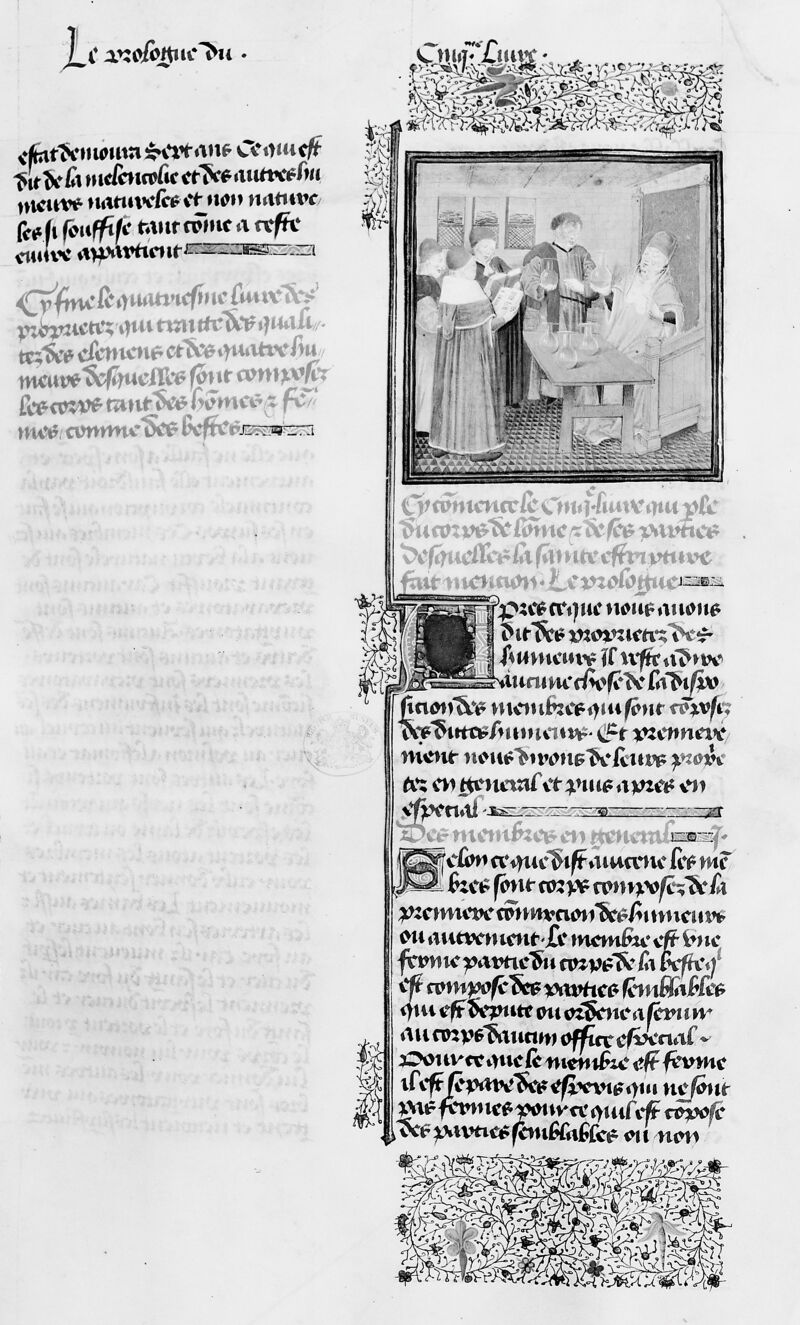 Le prologue du .
Cinq.me Liure .
estat demoura Sept ans Ce qui est
dit de la melencolie et des autres hu
meurs natureles et non nature
les si souffise tant cõme a ceste
euure appartient
Cy fine le quatriesme liure des
proprietez qui traitte des quali
tez des elemens et des quatre hu
meurs desquelles sont composez
les corps tant des hõmes ⁊ fẽ
mes comme des bestes
Cy cõmence le Cinq.e liure qui ple
du corps de lõme ⁊ de ses parties
desquelles la sainte escripture
fait mention . Le prologue
Apres ce que nous auons
dit des proprietez des
humeurs Il reste a dire
aucune chose de la dispo
sicion des membres qui sont cõposez
des dittes humeurs . Et premiere
ment nous dirons de leurs propre
tez en general et puis apres en
especial .
Des membres en general j .
Selon ce que dist auicene les mẽ
bres sont corps composez de la
premiere cõmixcion des humeurs
ou autrement . Le membre est vne
ferme partie du corps de la beste q
est compose des parties semblables
qui est depute ou ordene a seruir
au corps daucun office especial .
Pour ce que le membre est ferme
il est separe des esperis qui ne sont
pas fermes pour ce quil est cõpose
des parties semblables ou non